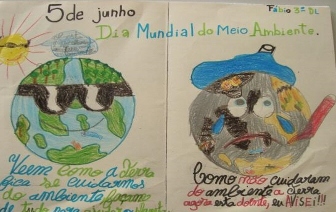 5 de junho
Fábio 3º DL
Dia Mundial do Meio Ambiente.
Veem como a Terra
fica se cuidarmos
do ambiente façam
de tudo para
Como não cuidaram
do ambiente a terra
agora está doente, eu AVISEI!!!